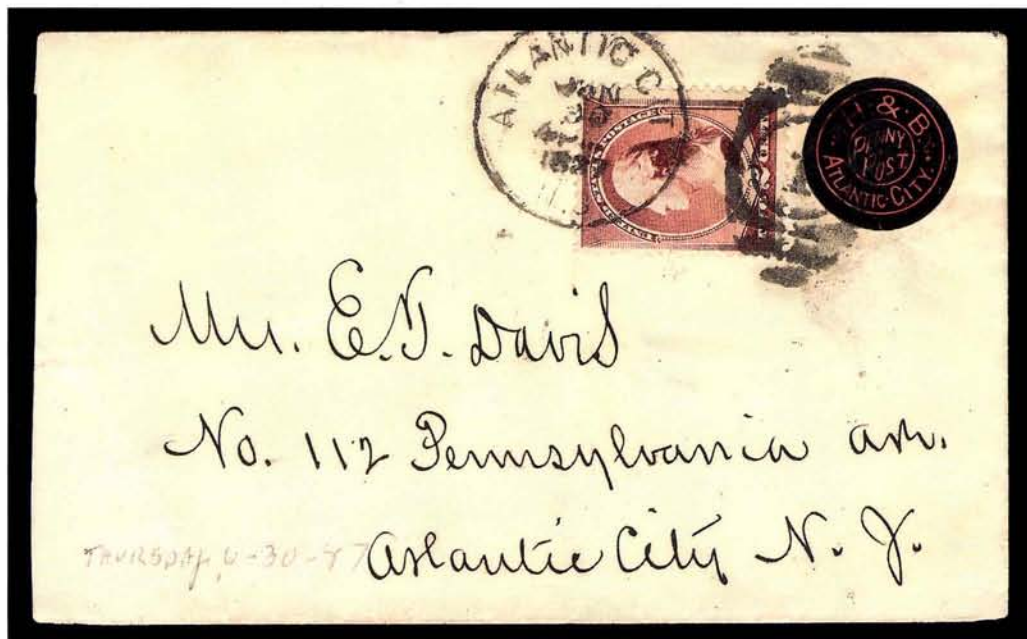 ATLANTIC CIT
JUN
30
PENNY
POST
ATLANTIC·CITY.
Mr. E.T. Davis
No. 112 Pennsylvania av.
Atlantic City N. J.
THURSDAY, 6-30-87